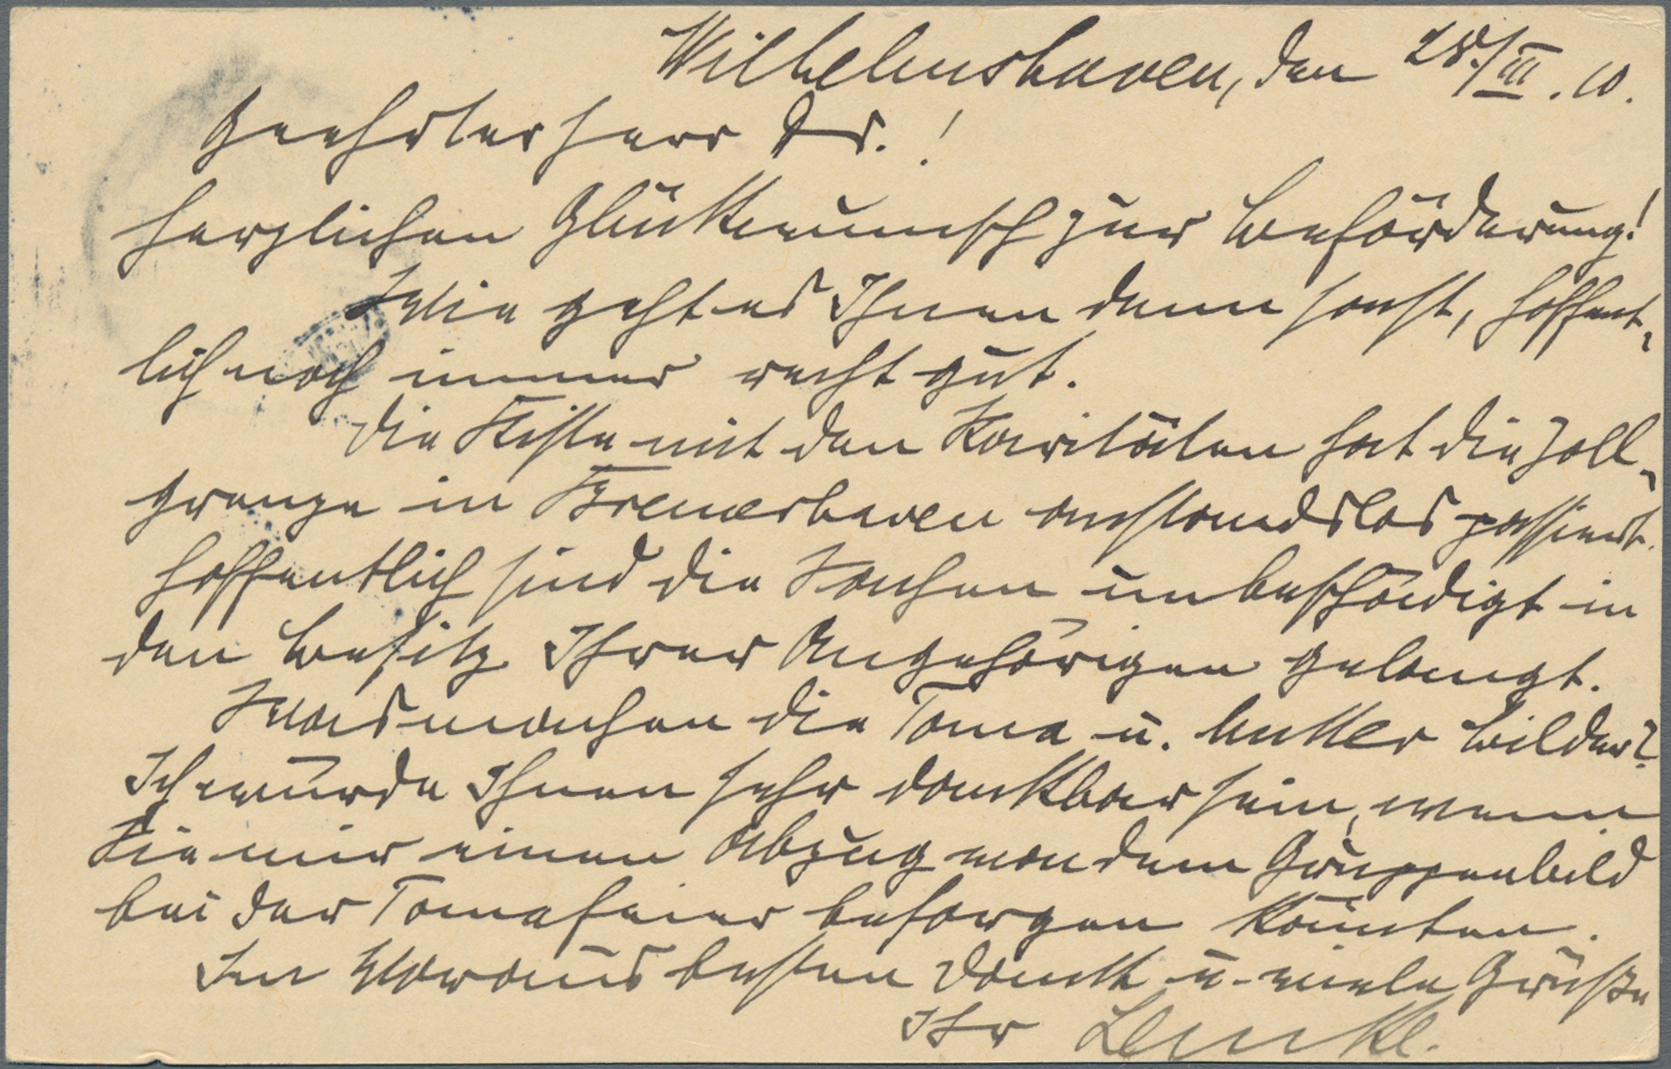 Wilhelmshaven, den 28./III. 10.
Geehrter Herr Dr.!
Herzlichen Glückwunsch zur Beförderung!
Wie geht es Ihnen denn sonst, hoffent-
lich noch immer recht gut.
Die Kiste mit den Raritäten hat die Zoll-
grenze in Bremerhaven anstandslos passiert.
Hoffentlich sind die Sachen unbeschädigt in
den Besitz Ihrer Angehörigen gelangt.
Was machen die Toma u. Bilder?
Ich würde Ihnen sehr dankbar sein, wenn
Sie mir einen Abzug von dem Gruppenbild
bei der Tomafeier besorgen könnten.
Im Voraus besten Dank u. viele Grüße
Ihr Lemke.